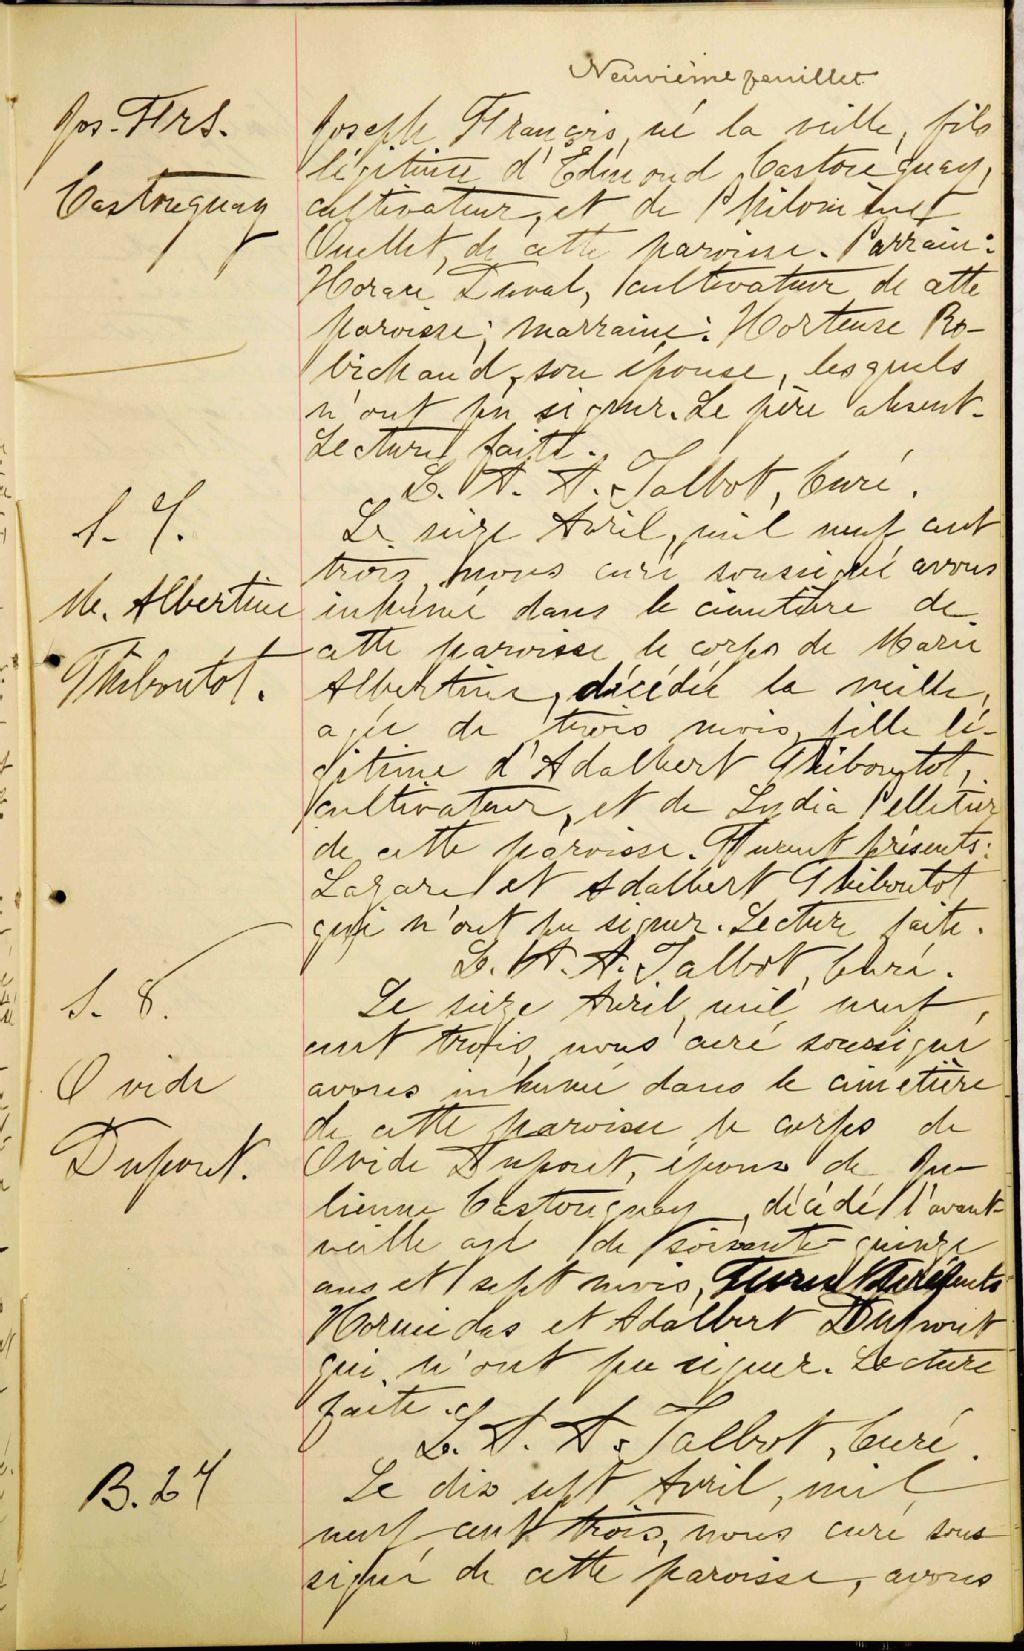 Neuvième feuillet
Jos. Frs.
Castonguay
Joseph François, né la veille, fils
légitime d'Edmond Castonguay,
cultivateur, et de Philomène
Ouellet, de cette paroisse. Parrain:
Horace Duval, cultivateur de cette
paroisse; marraine: Hortense Ro-
bichaud, son épouse, lesquels
n'ont pu signer. Le père absent.
Lecture faite.
L. A. A. Talbot, Curé.
S. 7.
M. Albertine
Thiboutot.
Le seize Avril, mil neuf cent
trois, nous curé soussigné avons
inhumé dans le cimetière de
cette paroisse le corps de Marie
Albertine, décédée la veille,
agée de trois mois, fille lé-
gitime d'Adalbert Thiboutot,
cultivateur, et de Lydia Pelletier
de cette paroisse. Furent présents:
Lazare et Adalbert Thiboutot
qui n'ont pu signer. Lecture faite.
L. A. A. Talbot, Curé.
S. 8.
Ovide
Dupont.
Le seize Avril, mil neuf
cent trois, nous curé soussigné
avons inhumé dans le cimetière
de cette paroisse le corps de
Ovide Dupont, époux de Ju-
lienne Castonguay, décédé l'avant-
veille agé de soixante-quinze
ans et sept mois, Furent présents
Hormidas et Adalbert Dupont
qui n'ont pu signer. Lecture
faite.
L. A. A. Talbot, Curé.
B. 27
Le dix sept Avril, mil
neuf cent trois, nous curé sous
signé de cette paroisse, avons